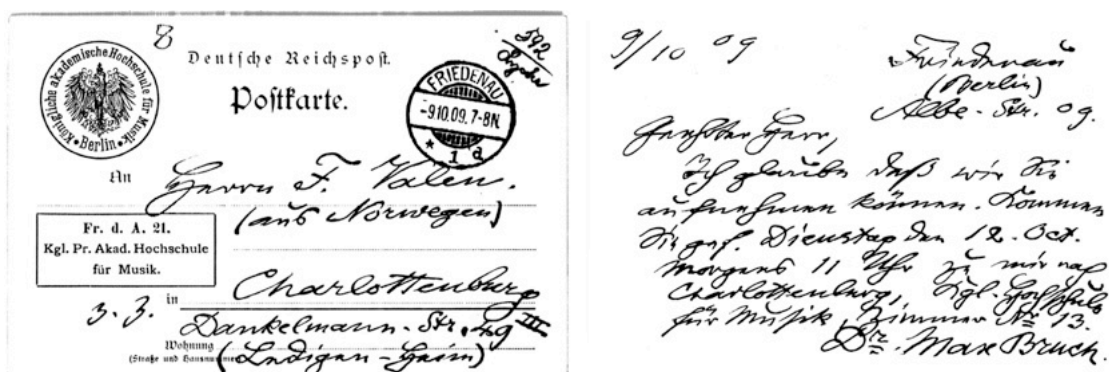 8
592
Deutsche Reichspost.
Postkarte.
Königliche akademische Hochschule für Musik • Berlin •
FRIEDENAU
-9.10.09.7-8N.
* 1 d
An
Herrn F. Valen.
(aus Norwegen)
Fr. d. A. 21.
Kgl. Pr. Akad. Hochschule
für Musik.
in
Charlottenburg
3. 3.
Dankelmann-Str. 49 III
Wohnung
(Straße und Hausnummer)
(Ledigen-Heim)
9/10 09
Friedenau
(Berlin)
Albe-Str.
Geehrter Herr,
Ich glaube daß wir Sie
aufnehmen können. Kommen
Sie gef. Dienstag den 12. Oct.
Morgens 11 Uhr zu mir nach
Charlottenburg, Kgl. Hochschule
für Musik, Zimmer No 13.
Dr. Max Bruch